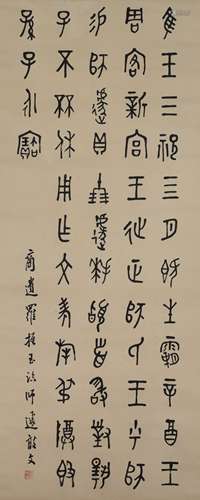 隹王三祀四月既生霸辛酉王
周客新宮王征正師氏王乎師
師遽貝十朋遽拜䭫首敢對揚
子不㔻休用乍文考旄叔𬯚𣪘
孫子永寶
商遺羅振玉臨師遽敦文